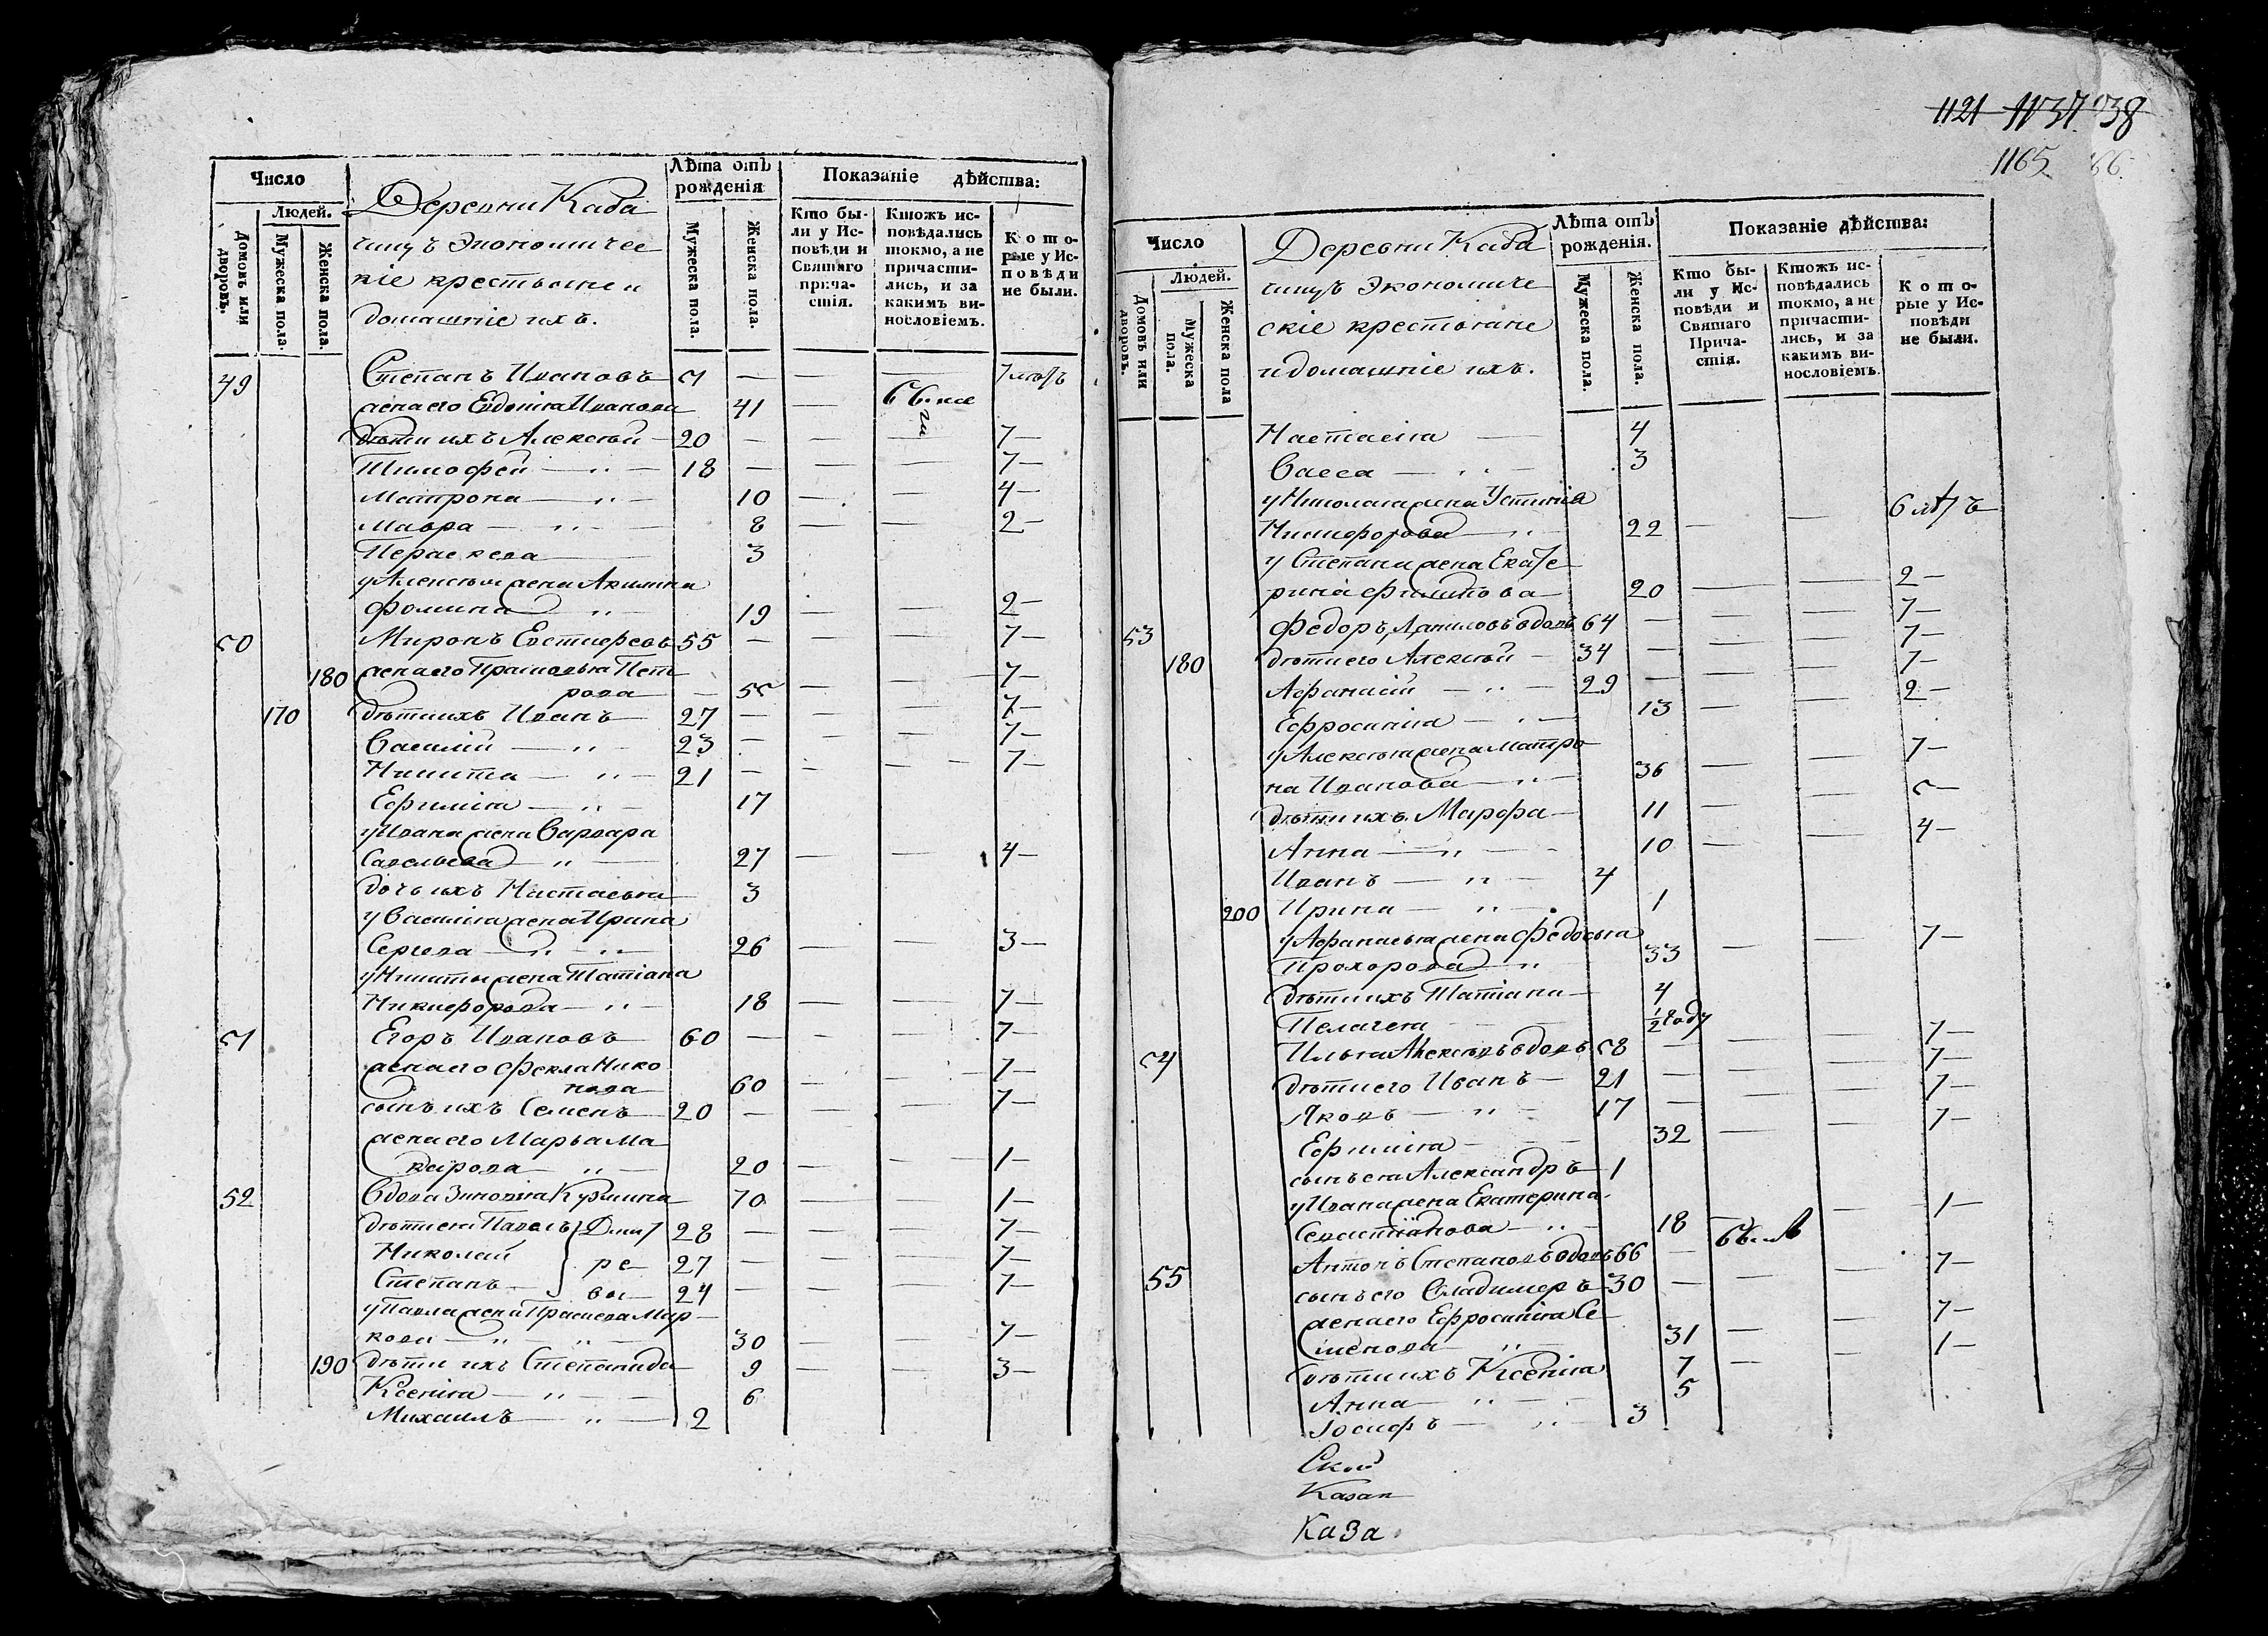 Число
Людей.
Домовъ или дворовъ.
Мужеска пола.
Женска пола.
Деревни Каба
чищъ Экономичес
кіе крестьяне и
домашніе ихъ.
Лѣта отъ рожденія
Мужеска пола.
Женска пола.
Показаніе дѣйства:
Кто бы-
ли у Ис-
повѣди и
Святаго
прича-
стія.
Ктожъ ис-
повѣдались
токмо, а не
причасти-
лись, и за
какимъ ви-
нословіемъ.
Кото-
рые у Ис-
повѣди
не были.
49 Степанъ Ивановъ — — 7 лѣтъ
жена его Евдокія Иванова 41 —
дѣти ихъ Алексѣй — 20 — — — 7 —
Тимофей — „ — 18 — — — 7 —
Матрона — „ — 10 — — 4 —
Мавра — „ — 8 — — 2 —
Параскева — 3
у Алексѣя жена Акилина
Фомина „ 19 — — 2 —
50 Миронъ Евстифеевъ 55 — — 7 —
180 жена его Прасковья Пет
рова — 55 — — 7 —
170 дѣти ихъ Иванъ — 27 — — — 7 —
Василій — „ — 23 — — — 7 —
Никита — „ — 21 — — — 7 —
Ефимія — „ — 17
у Ивана жена Варвара
Савельева „ — 27 — — 4 —
дочь ихъ Настасья 3
у Василія жена Ирина
Сергева — „ „ 26 — — 3 —
у Никиты жена Татіана
Никифорова — „ — 18 — — 7 —
51 Егоръ Ивановъ 60 — — 7 —
жена его Фекла Нико
нова 60 — — 7 —
сынъ ихъ Семенъ 20 — — 7 —
жена его Марья Ма
карова „ — 20 — — 1 —
52 Вдова Зиновія Кузмина 70 — — 1 —
дѣти ея Павелъ } Дмит 28 — — — 7 —
Николай } ре 27 — — — 7 —
Степанъ } вы 24 — — — 7 —
у Павла жена Прасковья Мар
кова — „ „ 30 — — 7 —
190 дѣти ихъ Степанида 9 — — 3 —
Ксенія — „ — 6
Михаилъ — „ — 2
1121 1137 38
1165 66
Число
Людей.
Домовъ или дворовъ.
Мужеска пола.
Женска пола
Деревни Каба
чищъ Экономиче
скіе крестьяне
и домашніе ихъ.
Лѣта отъ рожденія.
Мужеска пола.
Женска пола.
Показаніе дѣйства:
Кто бы-
ли у Ис-
повѣди и
Святаго
Прича-
стія.
Ктожъ ис-
повѣдались
токмо, а не
причасти-
лись, и за
какимъ ви-
нословіемъ.
Кото-
рые у Ис-
повѣди
не были.
Настасія — 4
Васса — „ — 3
у Николая жена Устинія
Никифорова „ 22 — — 6 лѣтъ
у Степана жена Екате
рина Филипова 20 — — 2 —
53 Федоръ Даниловъ вдовъ 64 — — 7 —
180 дѣти его Алексѣй — 34 — — 7 —
Афанасій — „ — 29 — — 7 —
Ефросинія — „ — 13 — — 2 —
у Алексѣя жена Матро
на Иванова — „ — 36 — — 7 —
дѣти ихъ Марфа — 11 — — 5 —
Анна — „ — 10 — — 4 —
Иванъ — „ — 4
200 Ирина — „ — 1
у Афанасья жена Федосья
Прохорова „ 33 — — 7 —
дѣти ихъ Татіана 4
Пелагея — 1/2 году
54 Илья Алексѣевъ вдовъ 58 — — 7 —
дѣти его Иванъ — 21 — — — 7 —
Яковъ — „ — 17 — — — 7 —
Ефимія — 32 — — 7 —
сынъ ея Александръ 1
у Ивана жена Екатерина
Севастіанова — „ — 18 — — 1 —
55 Антонъ Степановъ вдовъ 66 —
сынъ его Владимеръ 30 — — — 7 —
жена его Ефросинія Се
менова „ 31 — — 7 —
дѣти ихъ Ксенія 7 — — 1 —
Анна — „ — 5
Іосифъ — „ — 3
Казан
Каза